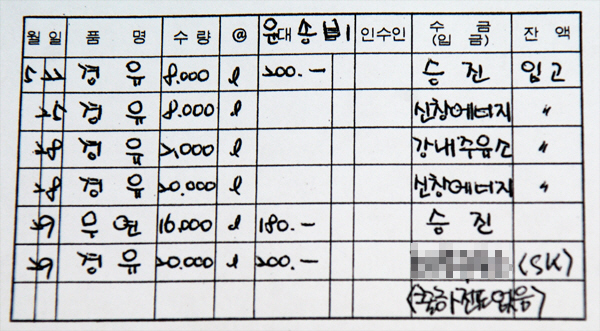 월 일 품 명 수 량 @ 운대 송비 인수인 수 금 (입 금) 잔 액
경 유 8.000 ℓ 200.— 승 진 입고
경 유 8.000 ℓ 신창에너지 〃
경 유 2,000 ℓ 강내주유소 〃
경 유 20.000 ℓ 신창에너지 〃
무 연 16,000 ℓ 180.— 승 진
경 유 20.000 ℓ 200.— (SK)
(출하전표없음)